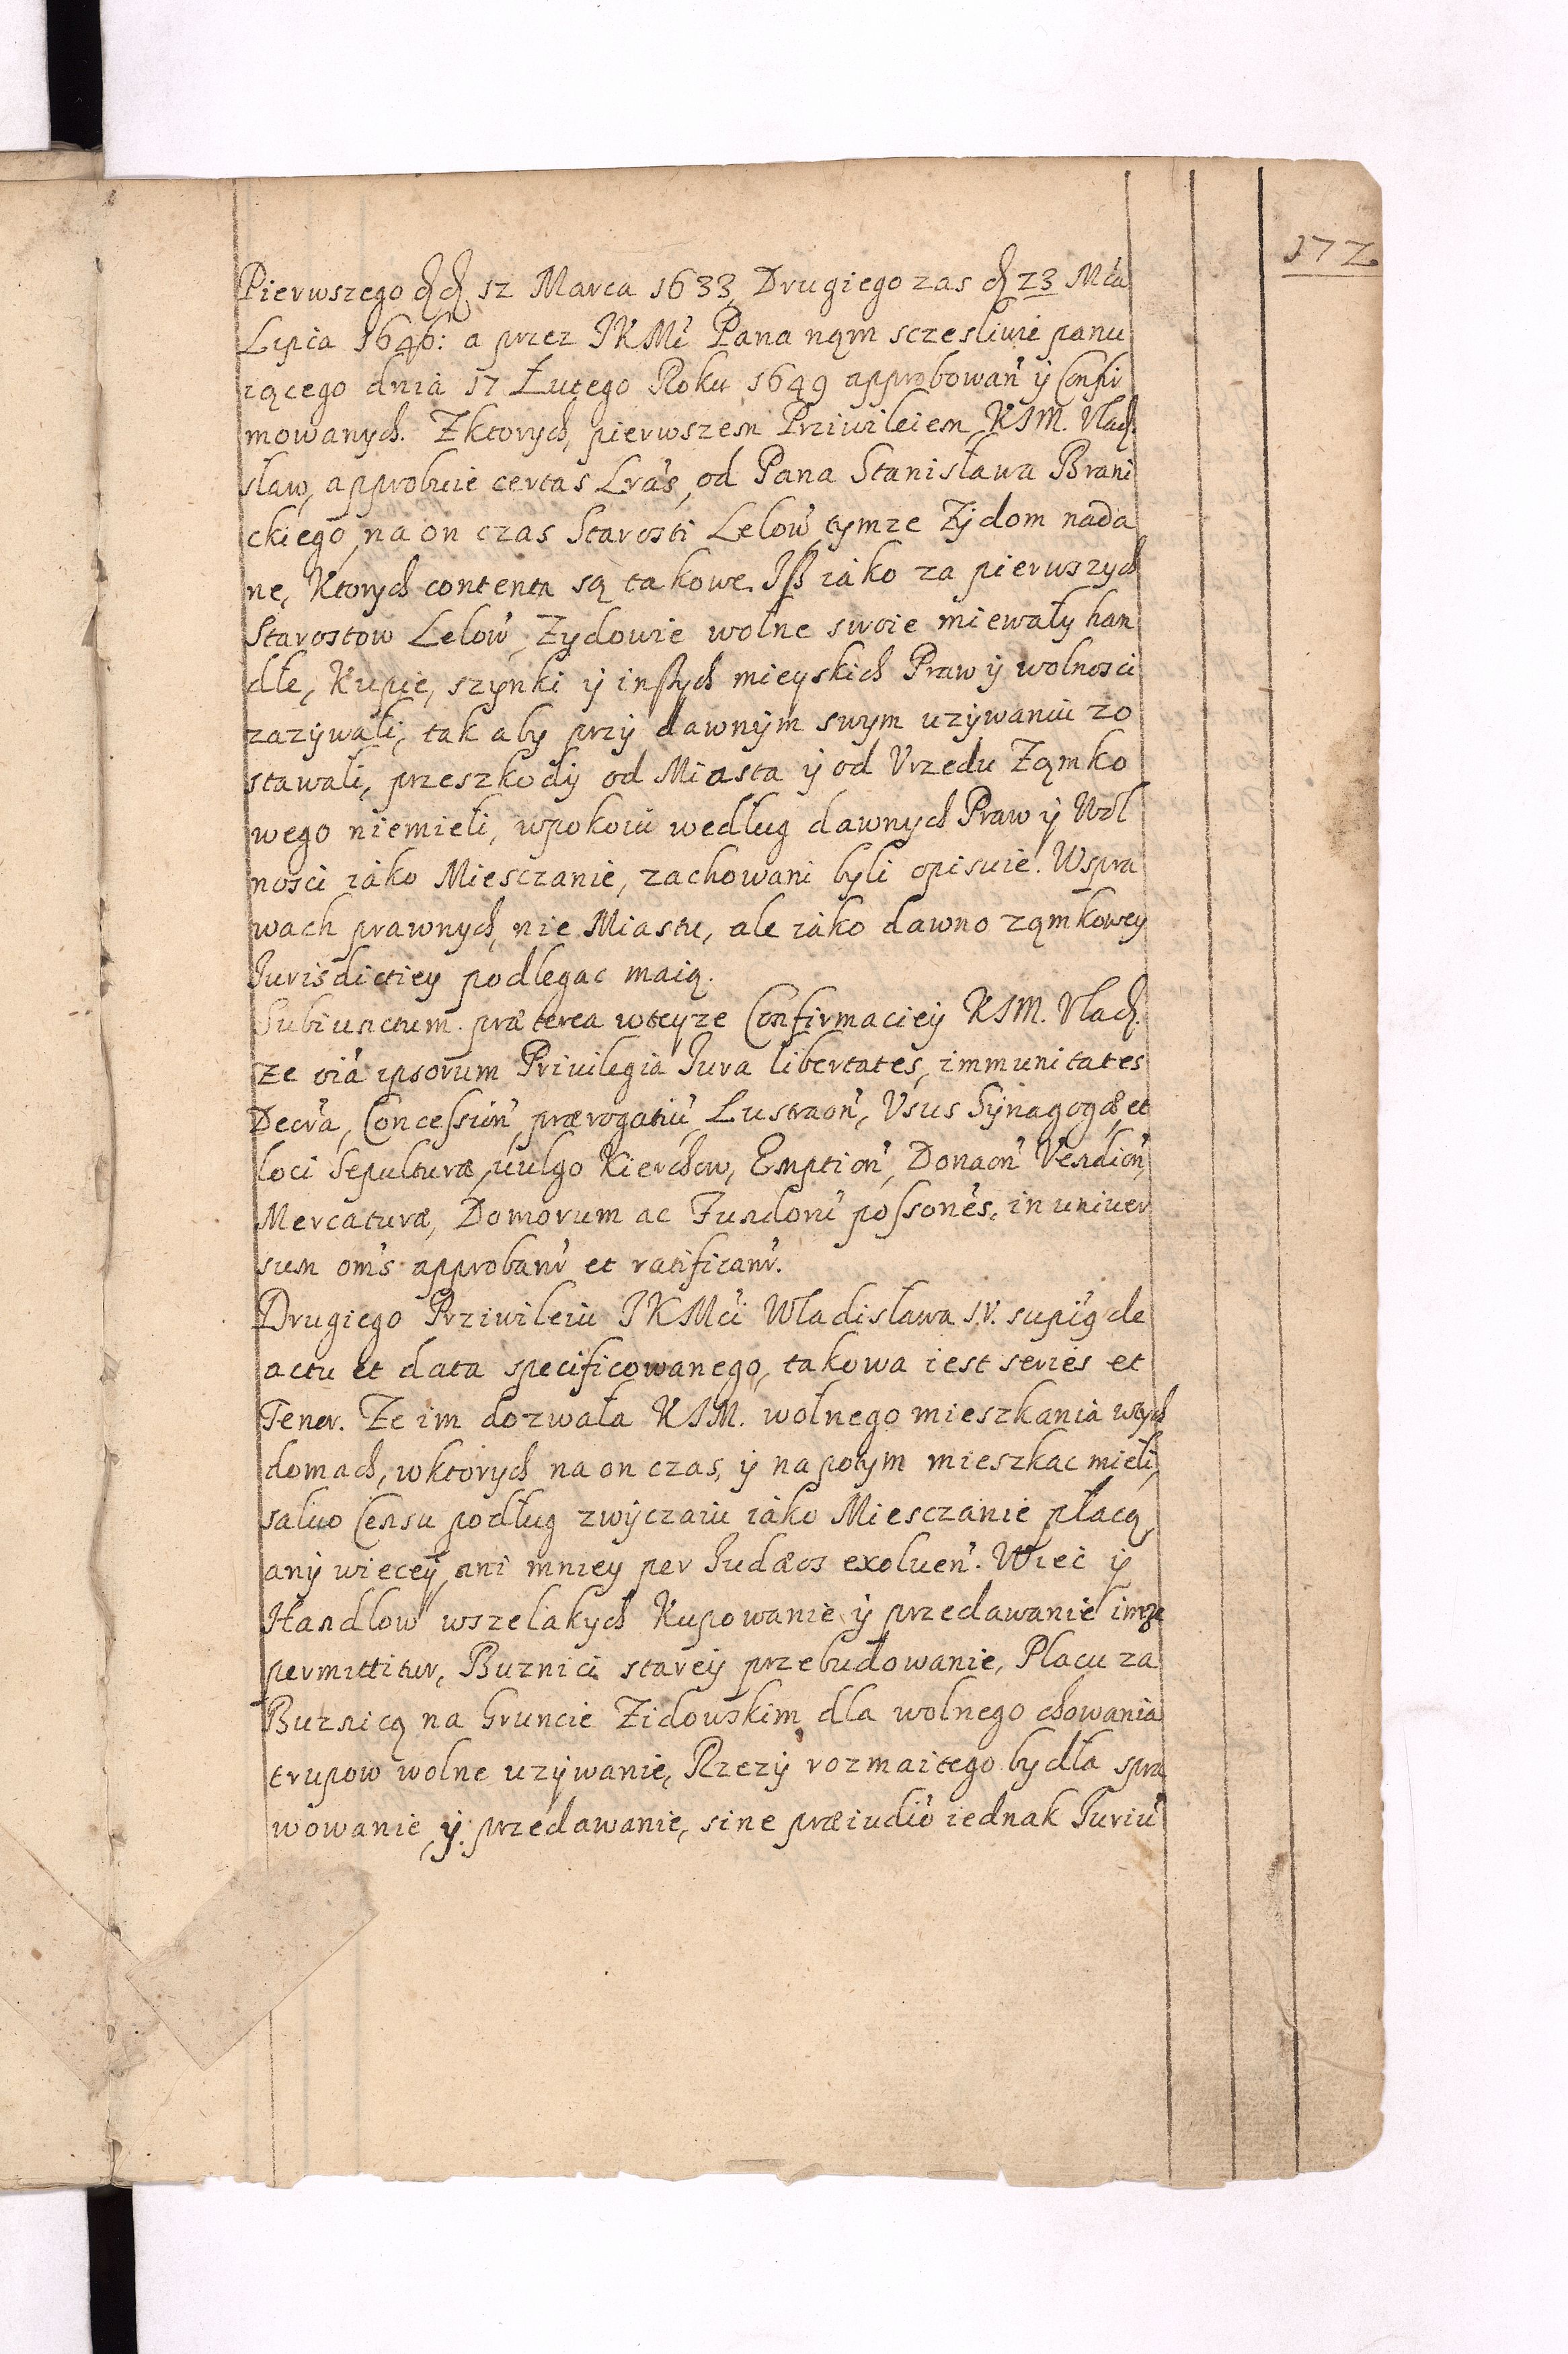 172
Pierwszego 12 Marca 1633, Drugiego zas 23 Mća
Lipca 1646: a przez JKMć Pana nąm sczesliwie panu
iącego dnia 17 Lutego Roku 1649 approbowań ÿ Confir
mowanych. Zktorych, pierwszem Priuileiem KJM. Vlad.
slaw, approbuie certas Lrás, od Pana Stanisława Brani
ckiego, na on czas Starosti Lelow, tymze Zÿdom nada
ne, Ktorych contenta są takowe. Jß iako za pierwszych
Starostow Lelow, Zydowie wolne swoie miewały han
dle, Kupie, szÿnki ÿ inßych mieyskich Praw ÿ wolnosci
zazÿwali, tak aby przÿ dawnÿm swym uzÿwaniu zo
stawali, przeszkodÿ od Miasta ÿ od Vrzedu Ząmko
wego niemieli, wpokoiu według dawnych Praw ÿ Wol
nosci iako Miesczanie, zachowani byli opisuie. Wspra
wach prawnych, nie Miastu, ale iako dawno ząmkowey
Jurisdictiey podlegac maią.
Subiunctum præterea wteyze Confirmaciey KJM. Vlad.
ze oia ipsorum Priuilegia Jura libertates, immunitates
Decra, Concession, prærogatiu, Lustraon, Vsus Sÿnagogæ, et
loci Sepulturæ, uulgo Kierchow, Emption, Donaon Vendion,
Mercaturæ, Domorum ac Fundoru possones, in uniuer
sum oms approbanr et ratificanr.
Drugiego Priuileiu JKMći Władisława S.V. supig de
actu et data specificowanego, takowa iest series et
Tener. Ze im dozwala KJM. wolnego mieszkania wtych
domach, wktorych na on czas, ÿ na potym mieszkac mieli,
saluo Censu podług zwÿczaiu iako Miesczanie płacą,
anÿ wiecey, ani mniey per Judæos exoluen. Wiec ÿ
Handlow wszelakych Kupowanie ÿ przedawanie imze
permittitur, Buznici starey przebudowanie, Placu za
Buznicą na Gruncie Zidowskim dla wolnego chowania
trupow wolne uzÿwanie, Rzezÿ rozmaitego bydła spra
wowanie ÿ przedawanie, sine præiudio iednak Juriu